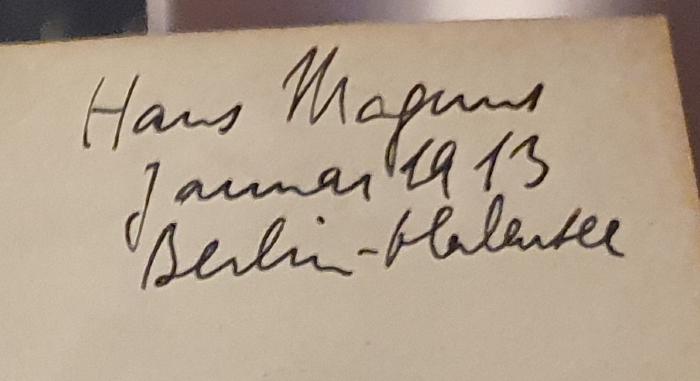 Hans Magnus
Januar 1913
Berlin-Halensee